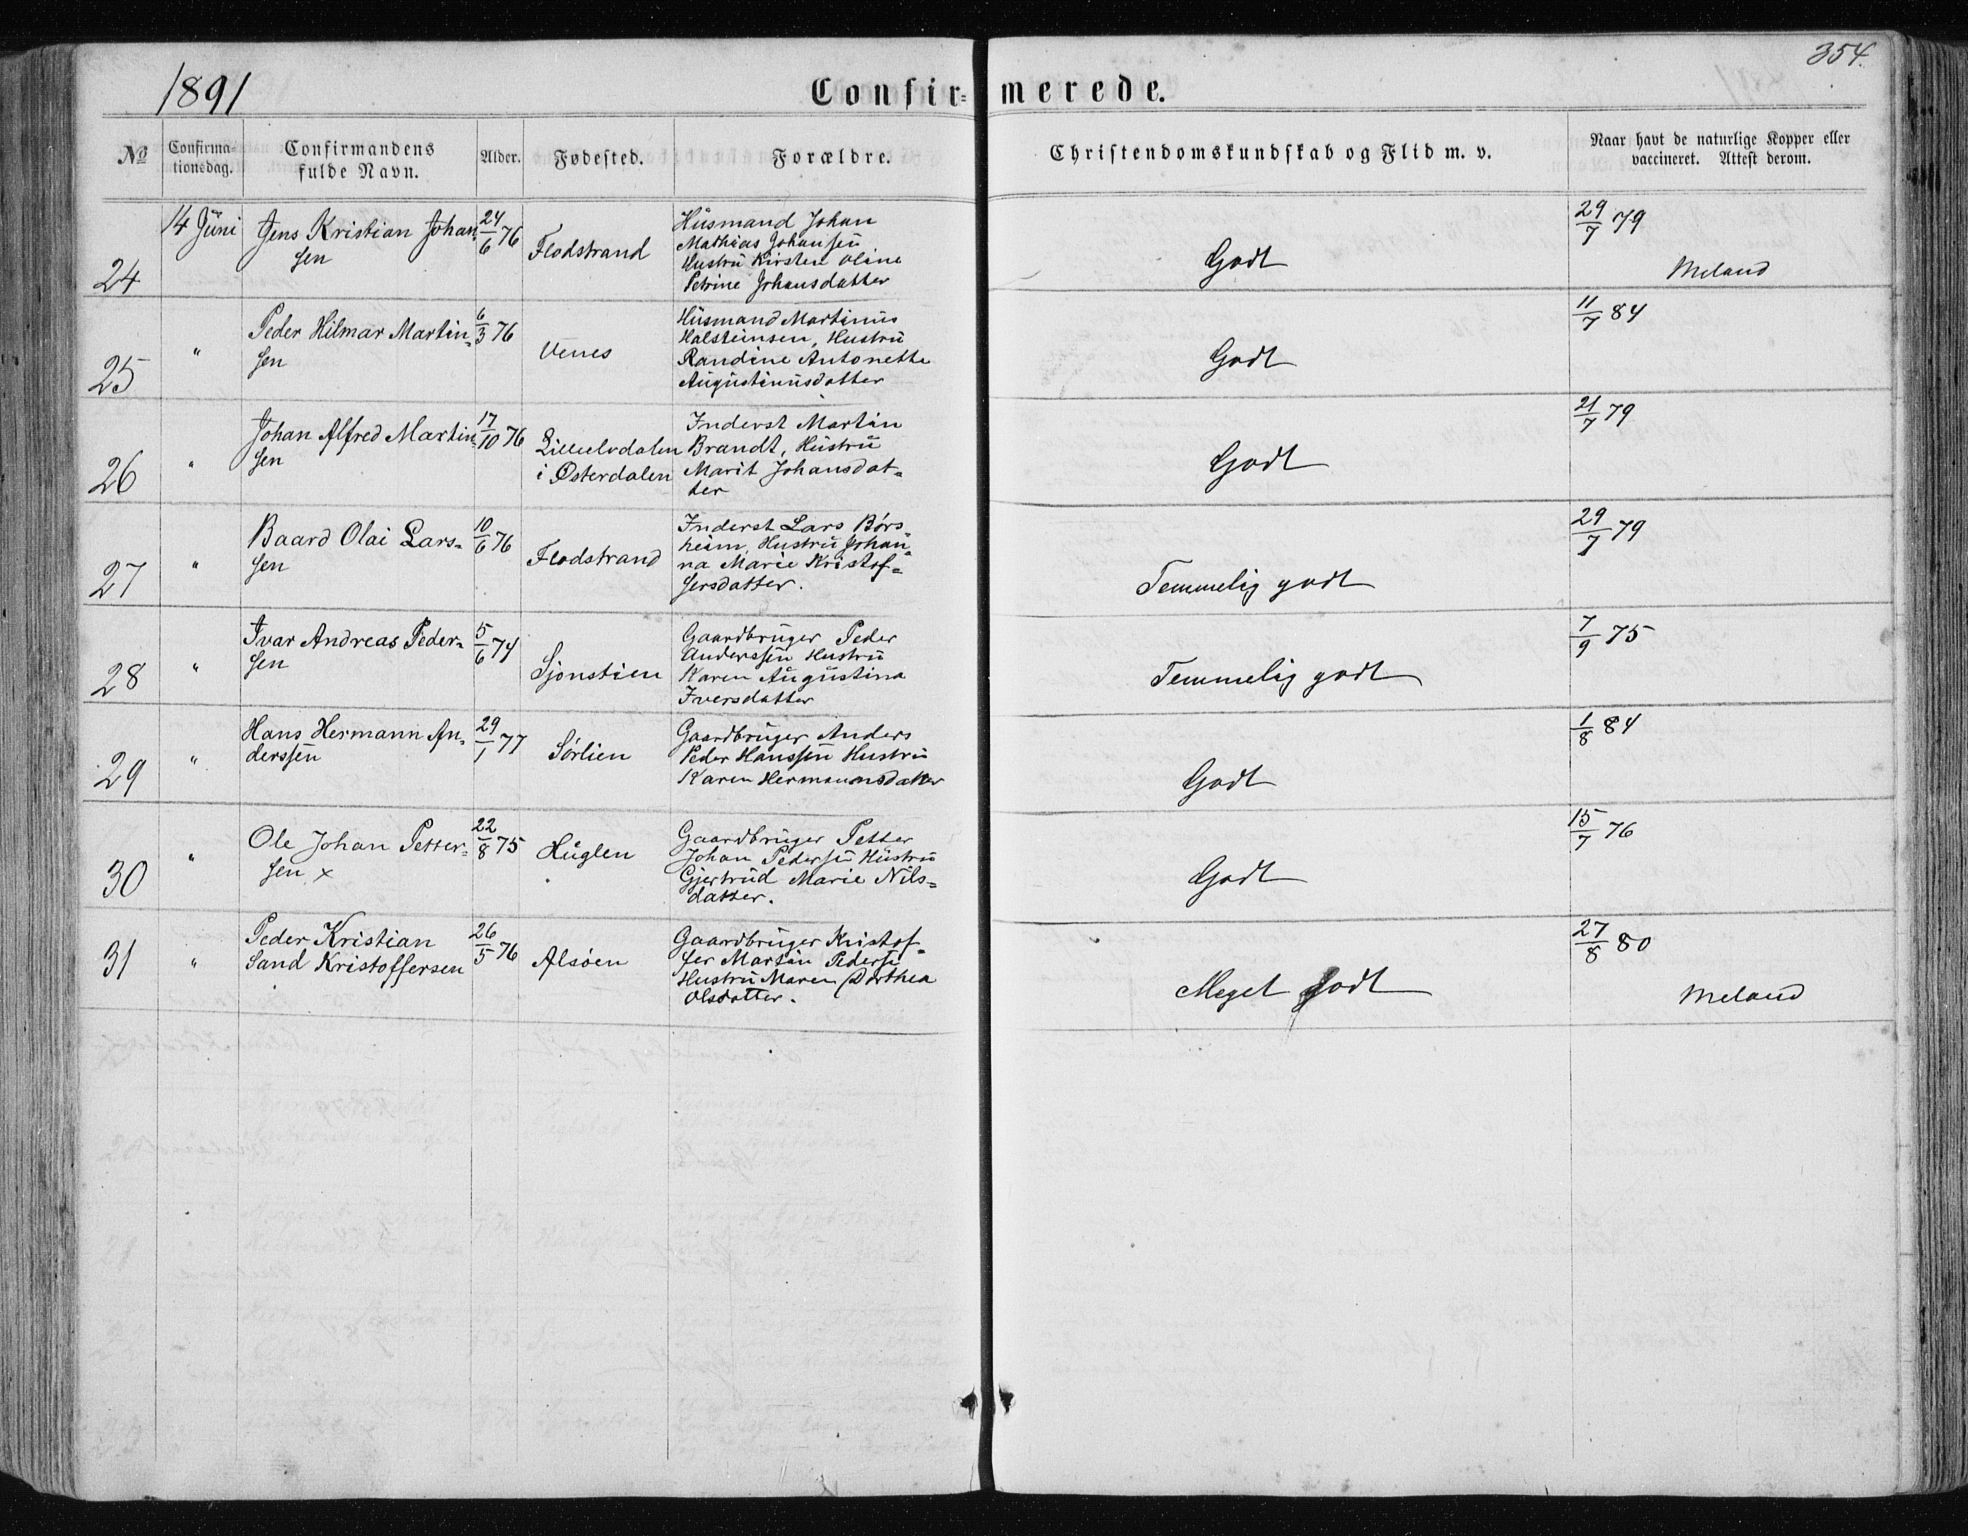 354.
1891
Confir= merede.
No
Confirma-
tionsdag.
Confirmandens
fulde Navn.
Alder.
Fødested.
Forældre.
Christendomskundskab og Flid m. v.
Naar havt de naturlige Kopper eller
vaccineret. Attest derom.
24
14 Juni
Jens Kristian Johan=
sen
24/6 76
Flodstrand
Husmand Johan
Mathias Johansen
Hustru Kirsten Oline
Petrine Johansdatter
Godt
29/7 79
Meland
25
"
Peder Hilmar Martin=
sen
6/3 76
Venes
Husmand Martinus
Halsteinsen, Hustru
Randine Antonette
Augustinusdatter
Godt
11/7 84
26
"
Johan Alfred Martin=
sen
17/10 76
Lilleelvdalen
i Østerdalen
Inderst Martin
Brandt, Hustru
Marit Johansdat=
ter
Godt
21/7 79
27
"
Baard Olai Lars=
sen
10/6 76
Flodstrand
Inderst Lars Børs
heim, Hustru Johan=
na Marie Kristof=
fersdatter.
Temmelig godt
29/7 79
28
"
Ivar Andreas Peder=
sen
5/6 74
Sjonstien
Gaardbruger Peder
Anderssen Hustru
Karen Augustina
Iversdatter
Temmelig godt
7/9 75
29
"
Hans Hermann An=
derssen
29/1 77
Sørlien
Gaardbruger Anders
Peder Hanssen Hustru
Karen Hermannsdatter
Godt
1/8 84
30
"
Ole Johan Petter=
sen x
22/8 75
Huglen
Gaardbruger Petter
Johan Pedersen Hustru
Gjertrud Marie Nils=
datter.
Godt
15/7 76
31
"
Peder Kristian
Sand Kristoffersen
26/5 76
Alsøen
Gaardbruger Kristof=
fer Martin Pedersen
Hustru Maren Dorthea
Olsdatter.
Meget godt
27/8 80
Meland